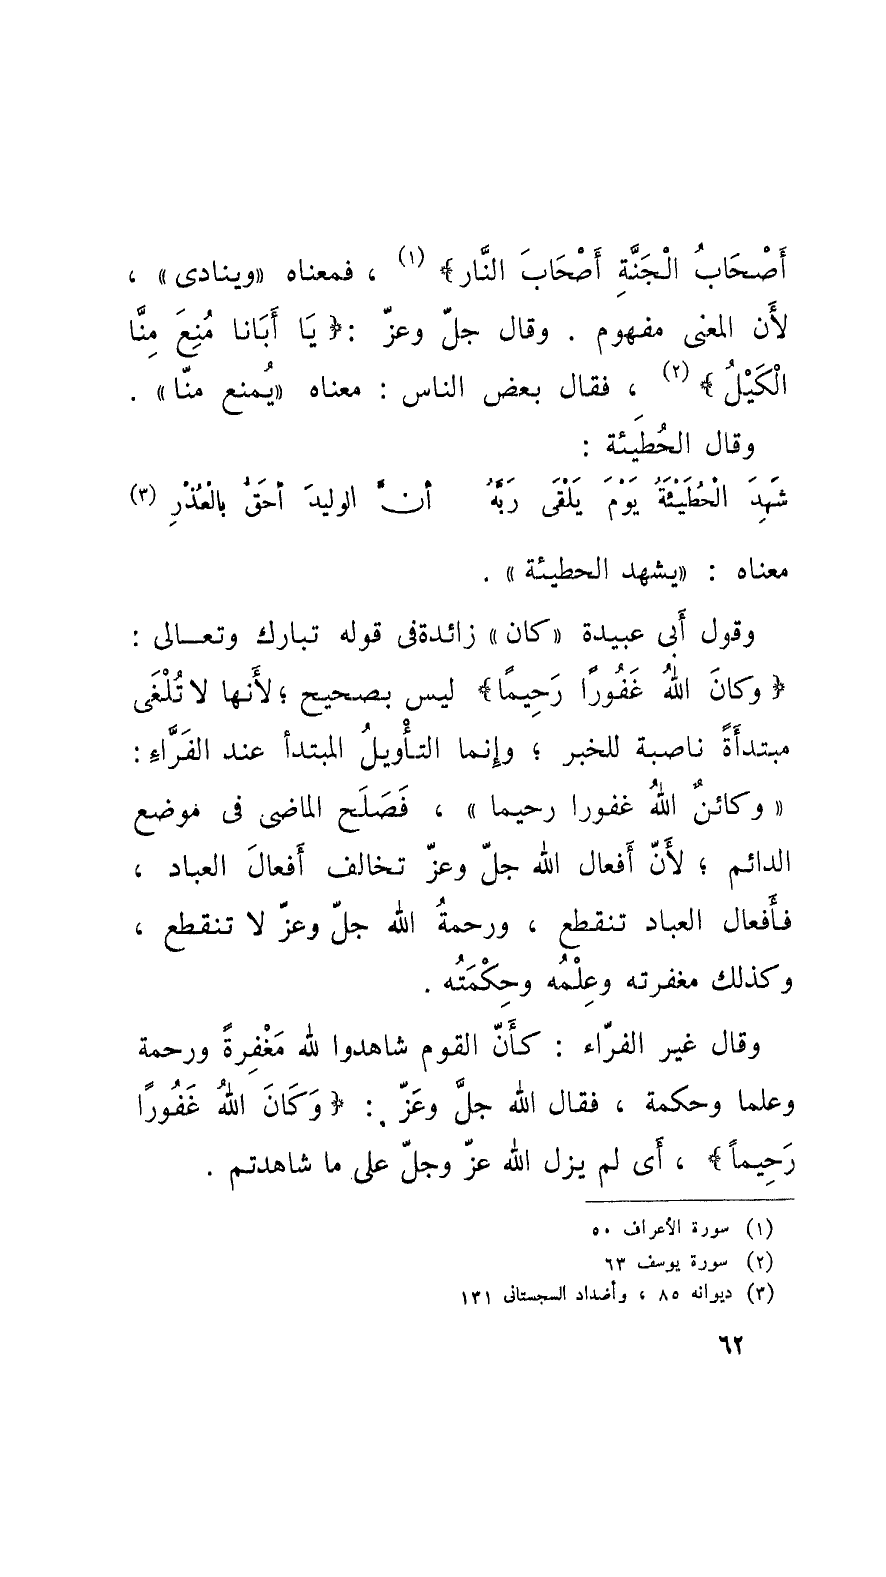 أَصْحَابُ الْجَنَّةِ أَصْحَابَ النَّار﴾ (١) ، فمعناه «وينادى» ،
لأَن المعنى مفهوم . وقال جلّ وعزّ : ﴿ يَا أَبَانا مُنِعَ مِنَّا
الْكَيْلُ ﴾ (٢) ، فقال بعض الناس : معناه «يُمنع منّا» .
وقال الحُطَيئة :
شَهِدَ الْحُطَيْئَةُ يَوْمَ يَلْقَى رَبَّهُ أنَّ الوليدَ أحَقُّ بالْعُذْرِ (٣)
معناه : «يشهد الحطيئة» .
وقول أَبى عبيدة «كان» زائدةفى قوله تبارك وتعـالى :
﴿ وكانَ اللهُ غَفُورًا رَحِيمًا﴾ ليس بصحيح ؛ لأَنها لا تُلْغَى
مبتدأَةً ناصبة للخبر ؛ وإنما التأْويلُ المبتدأ عند الفَرَّاءِ :
« وكائنٌ اللهُ غفورا رحيما » ، فَصَلَح الماضى فى موضع
الدائم ؛ لأَنّ أَفعال الله جلّ وعزّ تخالف أَفعالَ العباد ،
فأَفعال العباد تنقطع ، ورحمةُ الله جلّ وعزّ لا تنقطع ،
وكذلك مغفرته وعِلْمُه وحِكْمَتُه .
وقال غير الفرّاء : كأَنّ القوم شاهدوا لله مَغْفِرةً ورحمة
وعلما وحكمة ، فقال الله جلَّ وعَزّ : ﴿ وَكَانَ اللهُ غَفُورًا
رَحِيماً ﴾ ، أَى لم يزل الله عزّ وجلّ على ما شاهدتم .
(١) سورة الأعراف ٥٠
(٢) سورة يوسف ٦٣
(٣) ديوانه ٨٥ ، وأضداد السجستانى ١٣١
٦٢